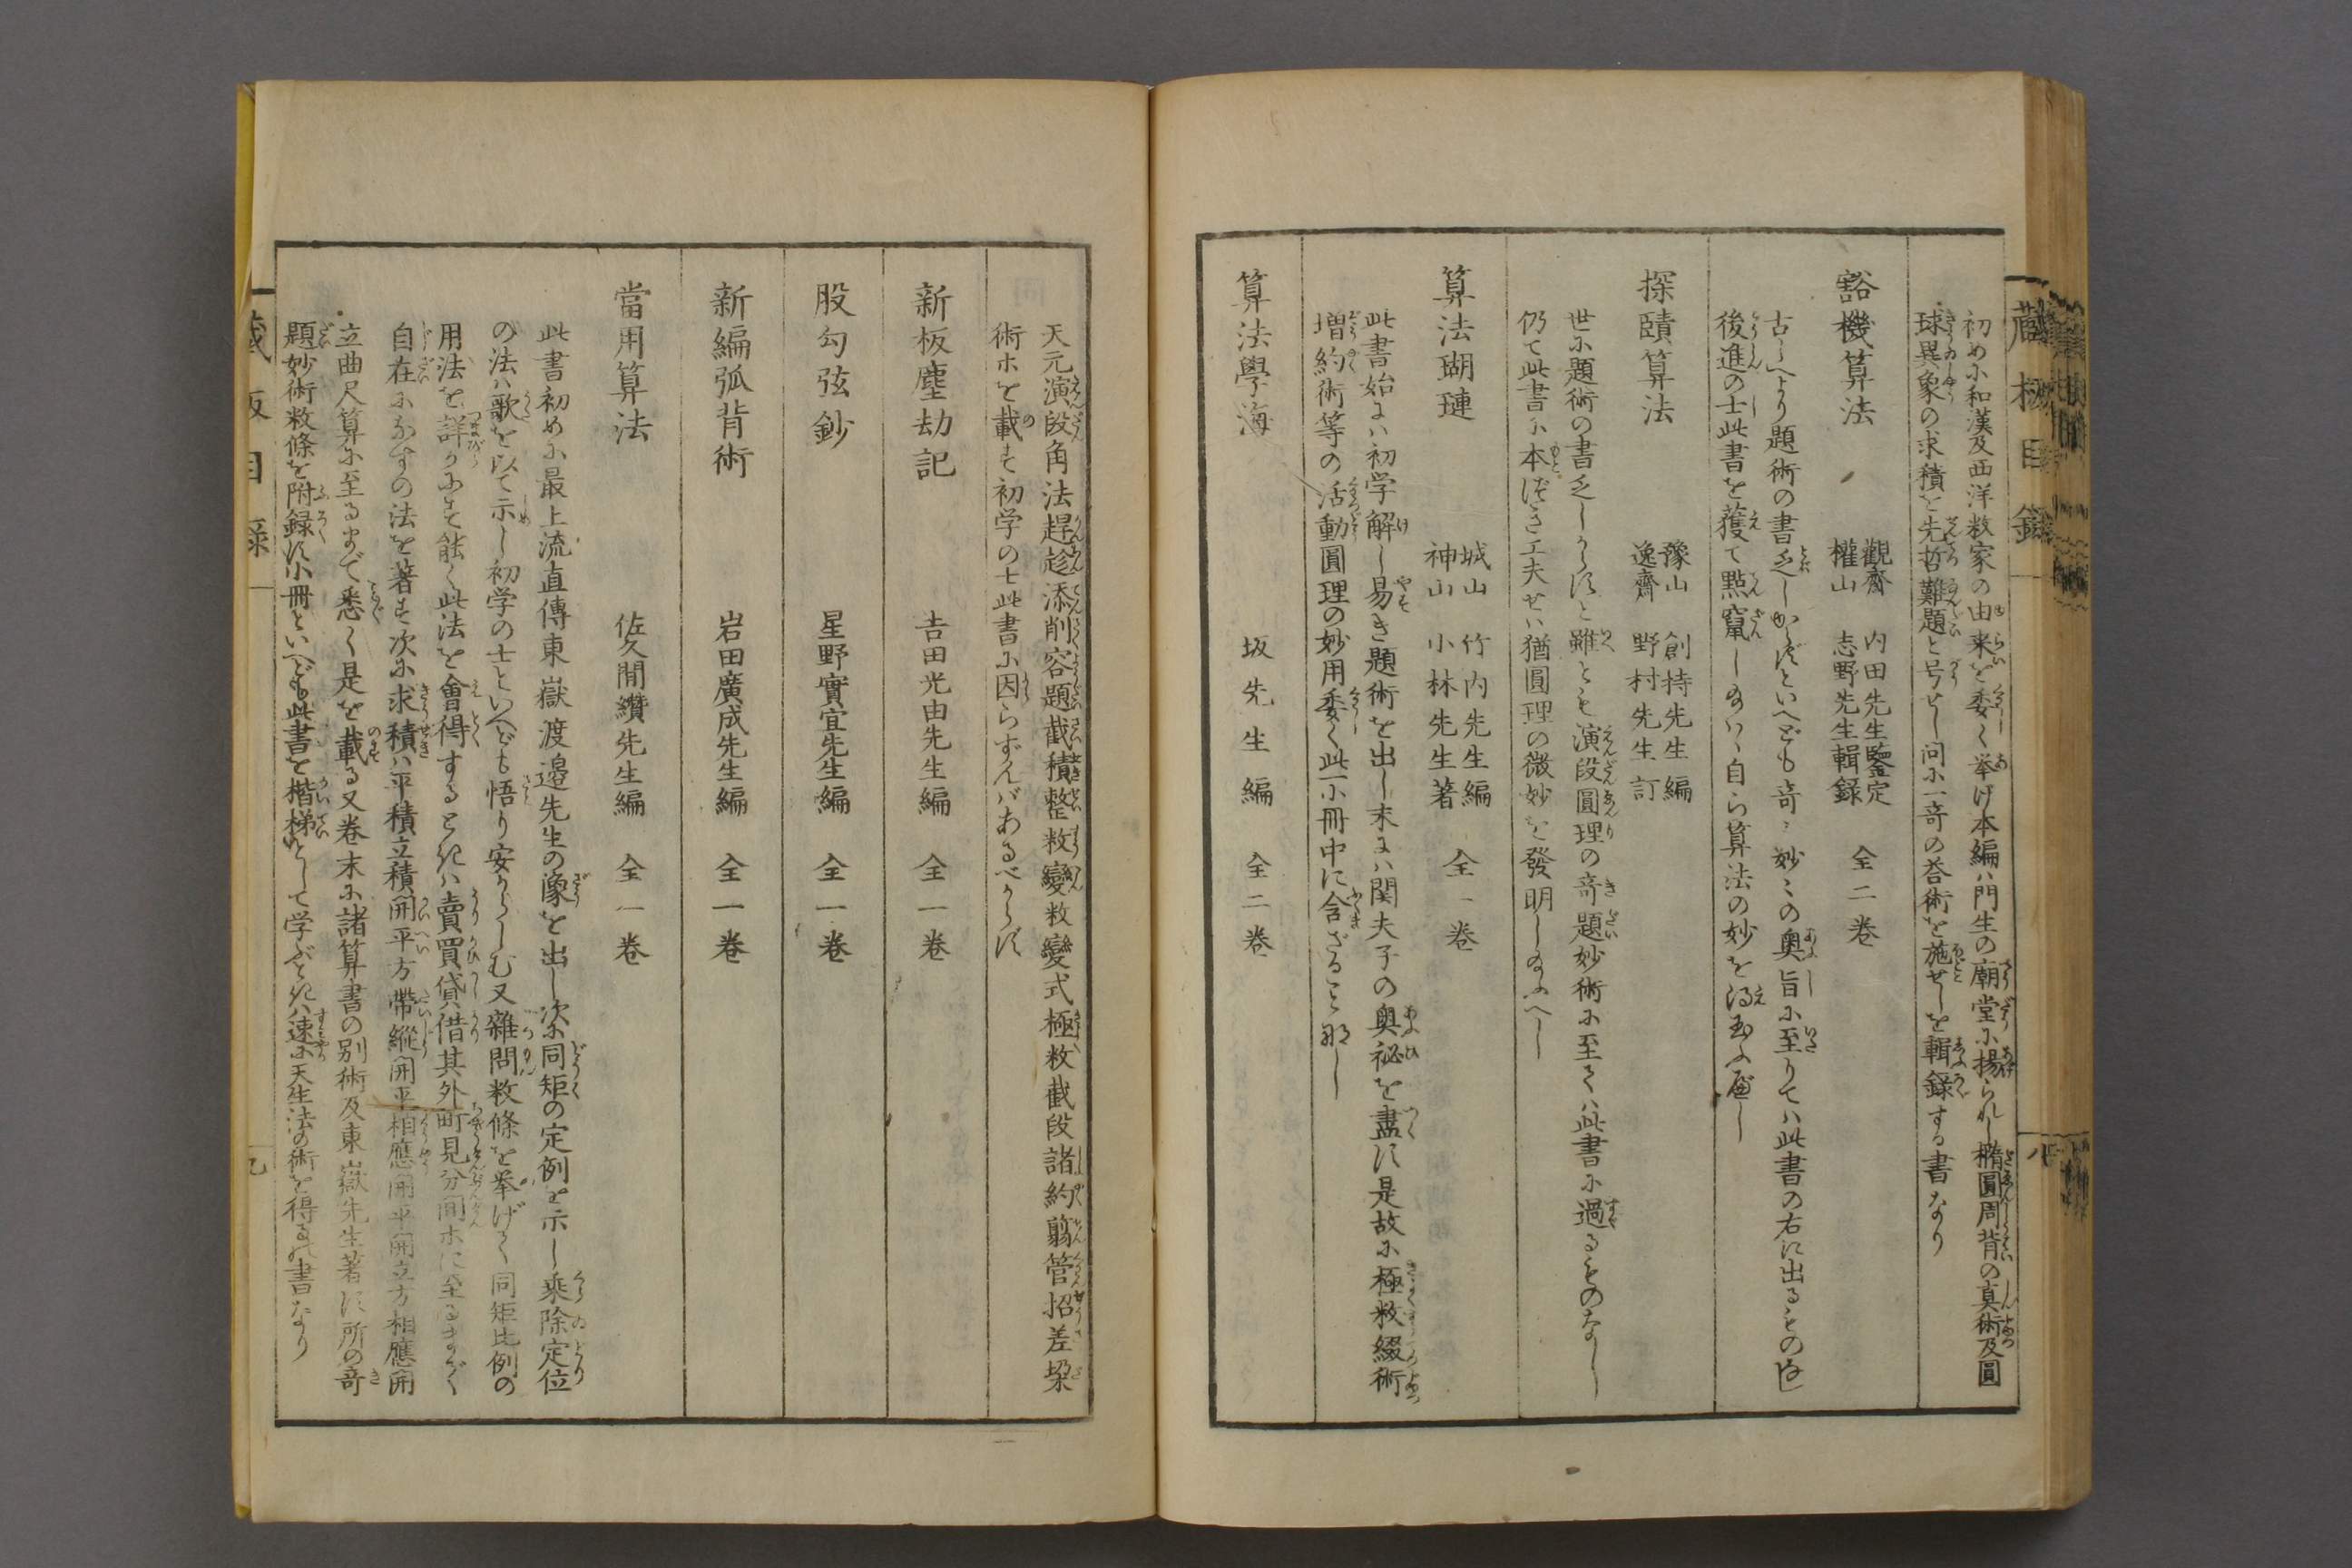 藏板目録
八
初め尓和漢及西洋数家の由来を委く挙げ本編ハ門生の廟堂尓揚られし楕圓周背の真術及圓
球異象の求積を先哲難題と号せし問尓一奇の答術を施せしを輯録する書なり
豁機算法
觀齋 内田先生鑒定
權山 志野先生輯録
全二巻
古しへより題術の書乏しからずといへども奇〻妙〻の奥旨尓至りてハ此書の右に出るものなし
後進の士此書を獲て點竄し給ハヾ自ら算法の妙を得玉ふ遍し
探賾算法
豫山 創持先生編
逸齋 野村先生訂
世尓題術の書乏しからずと雖とも演段圓理の奇題妙術尓至てハ此書尓過るものなし
仍て此書尓本づき工夫せハ猶圓理の微妙を發明し給ふへし
算法瑚璉
城山 竹内先生編
神山 小林先生著
全一巻
此書始にハ初学解し易き題術を出し末にハ関夫子の奥祕を盡す是故尓極数綴術
増約術等の活動圓理の妙用委く此一小冊中に含ざること那し
算法學海
坂先生編
全二巻
天元演段角法趕趁添削容題截積整数變数變式極数截段諸約翦管招差垜
術ホを載す初学の士此書尓因らずんバあるべからず
新板塵劫記
吉田光由先生編
全一巻
股勾弦鈔
星野實宜先生編
全一巻
新編弧背術
岩田廣成先生編
全一巻
當用算法
佐久間纘先生編
全一巻
此書初め尓最上流直傳東嶽渡邉先生の像を出し次尓同矩の定例を示し乘除定位
の法ハ歌を以て示し初学の士といへども悟り安からしむ又雜問数條を挙げて同矩比例の
用法を詳か尓す能く此法を會得するときハ賣買貸借其外町見分間ホに至るまで
自在尓なすの法を著す次尓求積ハ平積立積開平方帶縱開平相應開平開立方相應開
立曲尺算尓至るまで悉く是を載る又巻末尓諸算書の別術及東嶽先生著す所の奇
題妙術数條を附録す小冊といへども此書を楷梯として学ぶときハ速尓天生法の術を得るの書なり
藏板目録
九